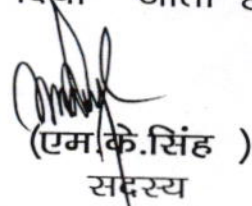 (एम.के.सिंह )
सदस्य